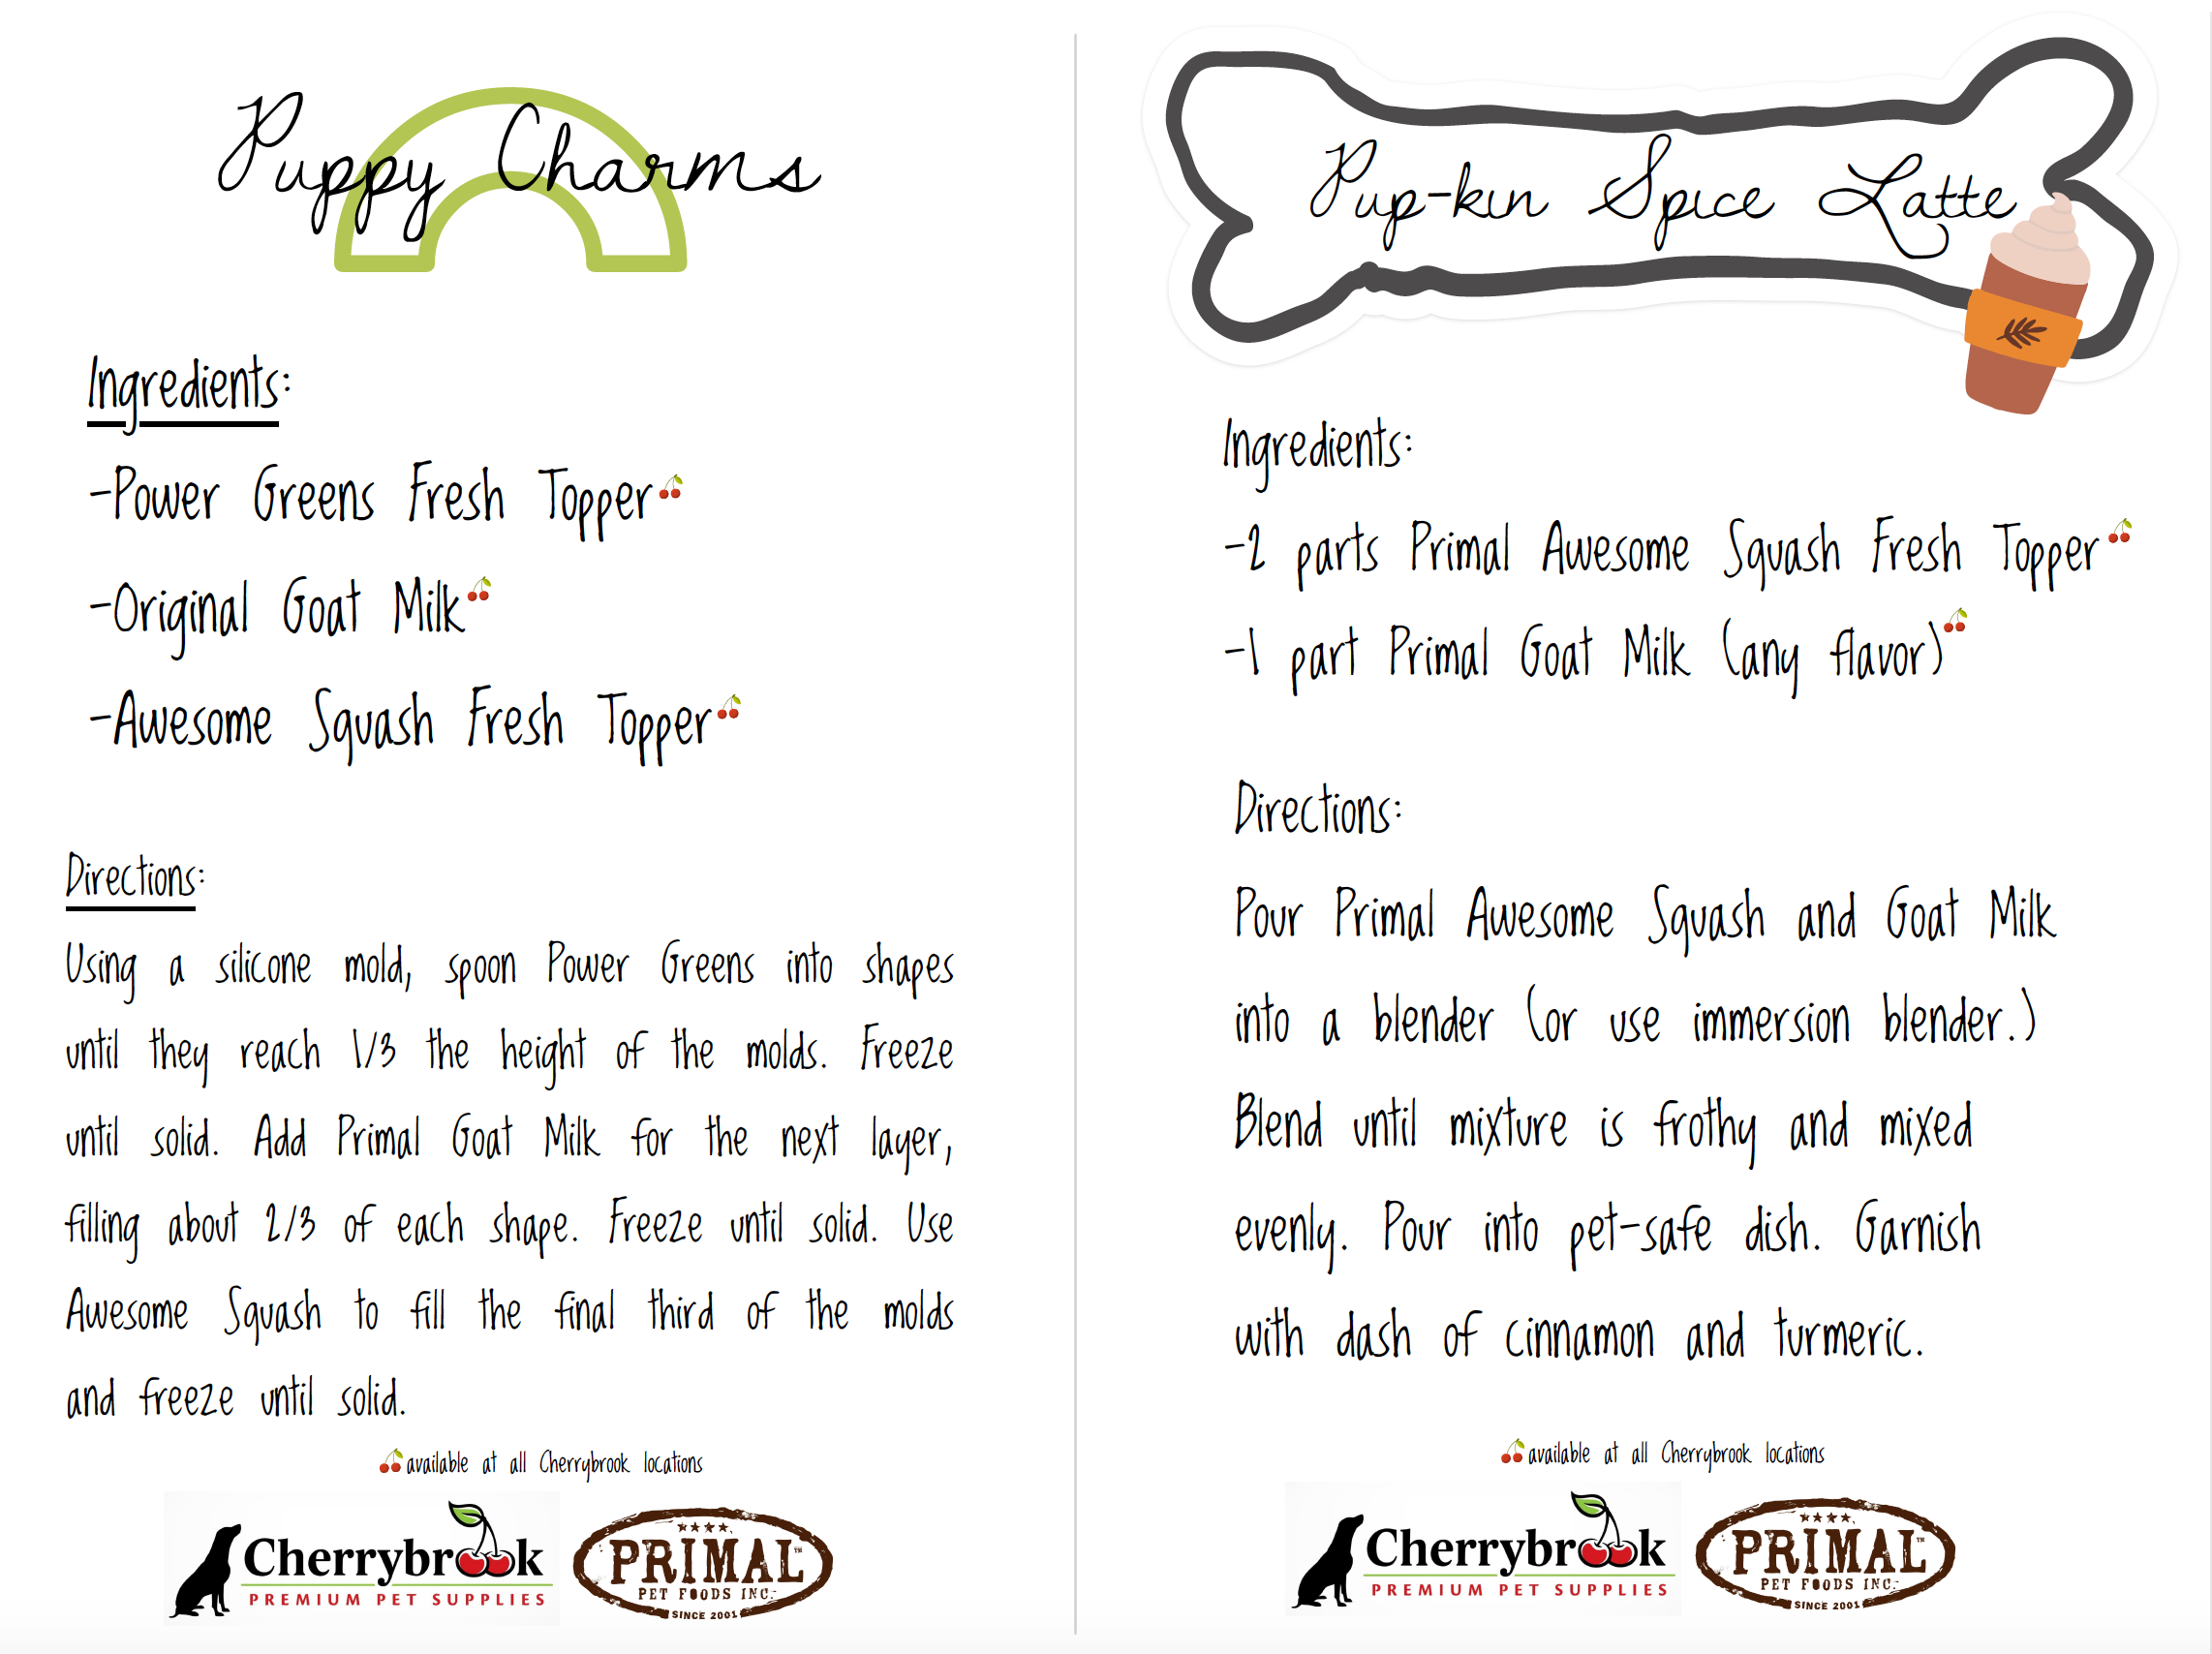 Puppy Charms
Ingredients:
-Power Greens Fresh Topper
-Original Goat Milk
-Awesome Squash Fresh Topper
Directions:
Using a silicone mold, spoon Power Greens into shapes
until they reach 1/3 the height of the molds. Freeze
until solid. Add Primal Goat Milk for the next layer,
filling about 2/3 of each shape. Freeze until solid. Use
Awesome Squash to fill the final third of the molds
and freeze until solid.
available at all Cherrybrook locations
Cherrybrook
PREMIUM PET SUPPLIES
PRIMAL™
PET FOODS INC.
SINCE 2001
Pup-kin Spice Latte
Ingredients:
-2 parts Primal Awesome Squash Fresh Topper
-1 part Primal Goat Milk (any flavor)
Directions:
Pour Primal Awesome Squash and Goat Milk
into a blender (or use immersion blender.)
Blend until mixture is frothy and mixed
evenly. Pour into pet-safe dish. Garnish
with dash of cinnamon and turmeric.
available at all Cherrybrook locations
Cherrybrook
PREMIUM PET SUPPLIES
PRIMAL™
PET FOODS INC.
SINCE 2001